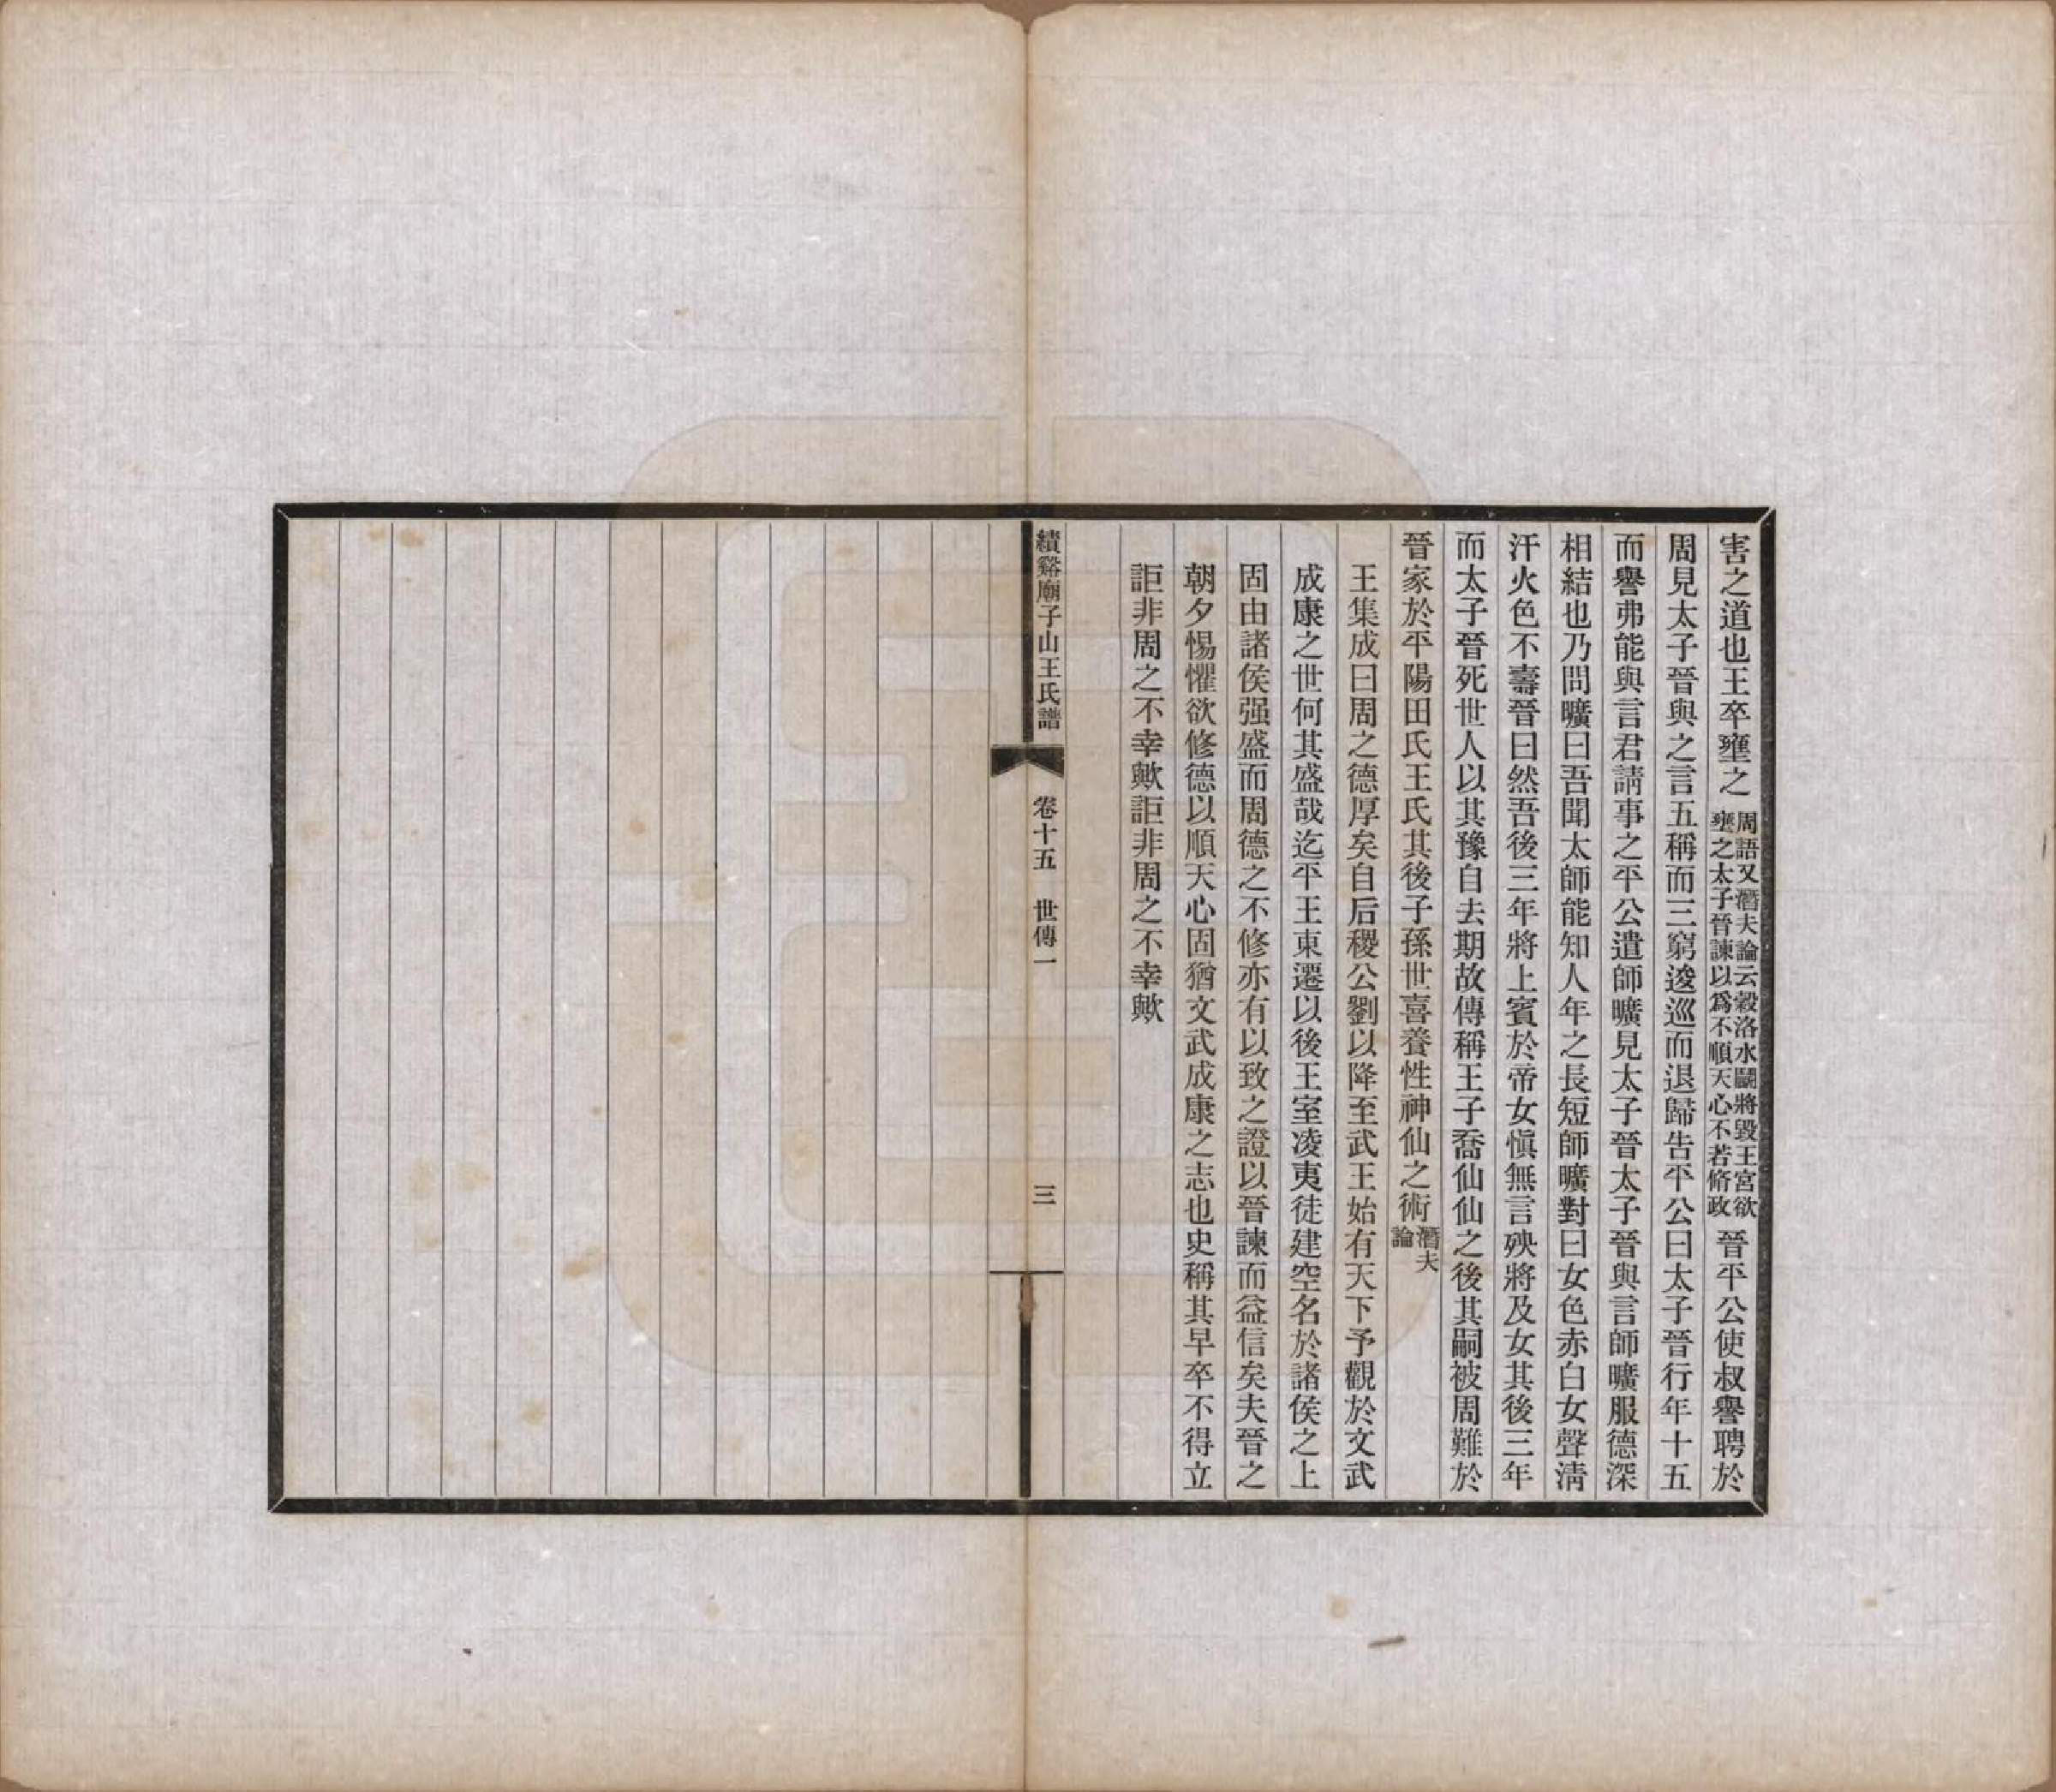 害之道也王卒壅之周語又潛夫論云穀洛水鬭將毀王宮欲壅之太子晉諫以爲不順天心不若脩政晉平公使叔譽聘於
周見太子晉與之言五稱而三窮逡巡而退歸告平公曰太子晉行年十五
而譽弗能與言君請事之平公遣師曠見太子晉太子晉與言師曠服德深
相結也乃問曠曰吾聞太師能知人年之長短師曠對曰女色赤白女聲淸
汗火色不壽晉曰然吾後三年將上賓於帝女愼無言殃將及女其後三年
而太子晉死世人以其豫自去期故傳稱王子喬仙仙之後其嗣被周難於
晉家於平陽田氏王氏其後子孫世喜養性神仙之術潛夫論
王集成曰周之德厚矣自后稷公劉以降至武王始有天下予觀於文武
成康之世何其盛哉迄平王東遷以後王室凌夷徒建空名於諸侯之上
固由諸侯强盛而周德之不修亦有以致之證以晉諫而益信矣夫晉之
朝夕惕懼欲修德以順天心固猶文武成康之志也史稱其早卒不得立
詎非周之不幸歟詎非周之不幸歟
績谿廟子山王氏譜
卷十五 世傳一
三